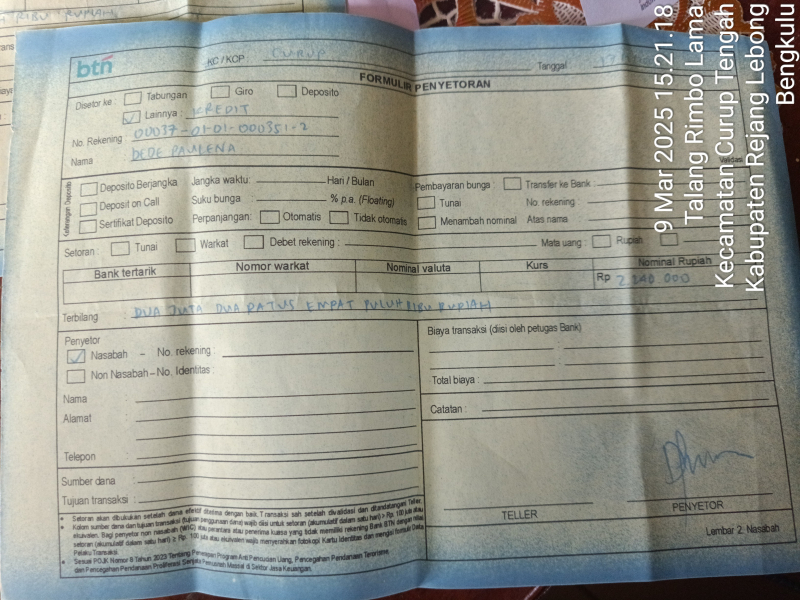 RIBU RUPIAH
btn
KC / KCP : CURUP
Tanggal
FORMULIR PENYETORAN
Disetor ke : Tabungan Giro Deposito
Lainnya : KREDIT
No. Rekening : 00037-01-01-000351-2
Nama : DEDE PAULENA
Validasi
Keterangan Deposito
Deposito Berjangka Jangka waktu: Hari / Bulan
Deposit on Call Suku bunga : % p.a. (Floating)
Sertifikat Deposito Perpanjangan: Otomatis Tidak otomatis
Pembayaran bunga : Transfer ke Bank :
Tunai No. rekening :
Menambah nominal Atas nama
Setoran : Tunai Warkat Debet rekening : Mata uang : Rupiah
Bank tertarik Nomor warkat Nominal valuta Kurs Nominal Rupiah
Rp 2.240.000
Terbilang : DUA JUTA DUA RATUS EMPAT PULUH RIBU RUPIAH
Penyetor
Nasabah – No. rekening :
Non Nasabah – No. Identitas :
Nama :
Alamat :
Telepon :
Sumber dana :
Tujuan transaksi :
Biaya transaksi (diisi oleh petugas Bank)
Total biaya :
Catatan :
TELLER
PENYETOR
Lembar 2: Nasabah
Setoran akan dibukukan setelah dana efektif diterima dengan baik. Transaksi sah setelah divalidasi dan ditandatangan Teller.
Kolom sumber dana dan tujuan transaksi (tujuan penggunaan dana) wajib diisi untuk setoran (akumulatif dalam satu hari) > Rp. 100 juta atau
ekuivalen. Bagi penyetor non nasabah (WIC) atau perantara atau penerima kuasa yang tidak memiliki rekening Bank BTN dengan nilai
setoran (akumulatif dalam satu hari) ≥ Rp. 100 juta atau ekuivalen wajib menyerahkan fotokopi Kartu Identitas dan mengisi formulir Data
Pelaku Transaksi.
Sesuai POJK Nomor 8 Tahun 2023 Tentang Penerapan Program Anti Pencucian Uang, Pencegahan Pendanaan Terorisme,
dan Pencegahan Pendanaan Proliferasi Senjata Pemusnah Massal di Sektor Jasa Keuangan.
9 Mar 2025 15.21.18
Talang Rimbo Lama
Kecamatan Curup Tengah
Kabupaten Rejang Lebong
Bengkulu